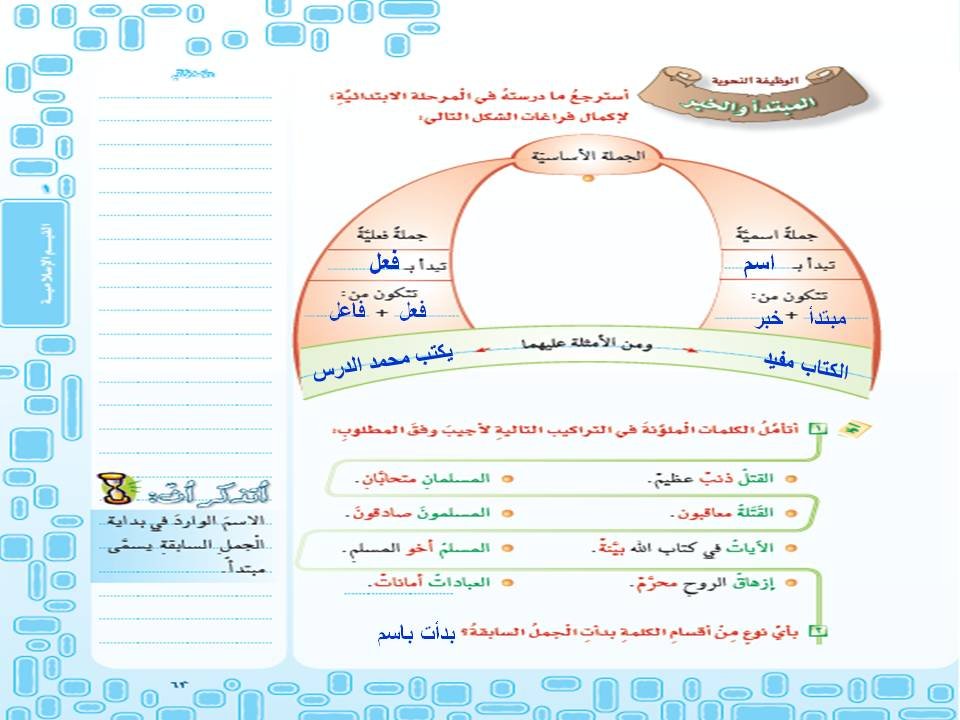 الوظيفة النحوية
المبتدأ والخبر
أسترجعُ ما درستهُ في الْمرحلة الابتدائيَّةِ؛
لإكمال فراغات الشكل التالي:
الجملة الأساسيّة
جملةٌ اسميَّةٌ
تبدأ بـ اسم
تتكون من:
مبتدأ + خبر
جملةٌ فعليَّةٌ
تبدأ بـ فعل
تتكون من:
فعل + فاعل
ومن الأمثلة عليهما
الكتاب مفيد
يكتب محمد الدرس
١ أتأمَّلُ الكلمات الْملوَّنةَ في التراكيب التاليةِ لأجيبَ وفقَ المطلوبِ:
القتلُ ذنبٌ عظيمٌ.
المسلمانِ متحابَّانِ.
القَتَلةُ معاقبون.
المسلمونَ صادقونَ.
الآياتُ في كتاب الله بيِّنةٌ.
المسلمُ أخو المسلمِ.
إزهاقُ الروحِ محرَّمٌ.
العباداتُ أماناتٌ.
٢ بأيِّ نوعٍ مِنْ أقسامِ الكلمةِ بدأتِ الْجملُ السابقةُ؟ بدأت باسم
أتذكر أن:
الاسمَ الواردَ في بداية
الْجملِ السابقةِ يسمَّى
مبتدأً.
القيم الإسلامية
٦٣